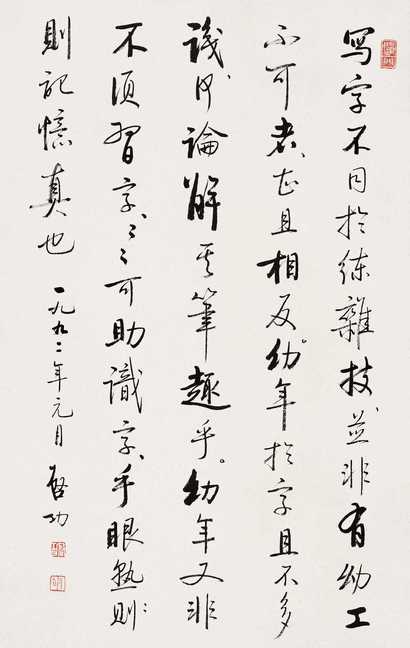 写字不同於练雜技並非有幼工
不可者甚且相反幼年於字且不多
識何論解其筆趣乎幼年又非
不須習字習字可助識字手眼熟則
則記憶真也 一九九二年元月 启功